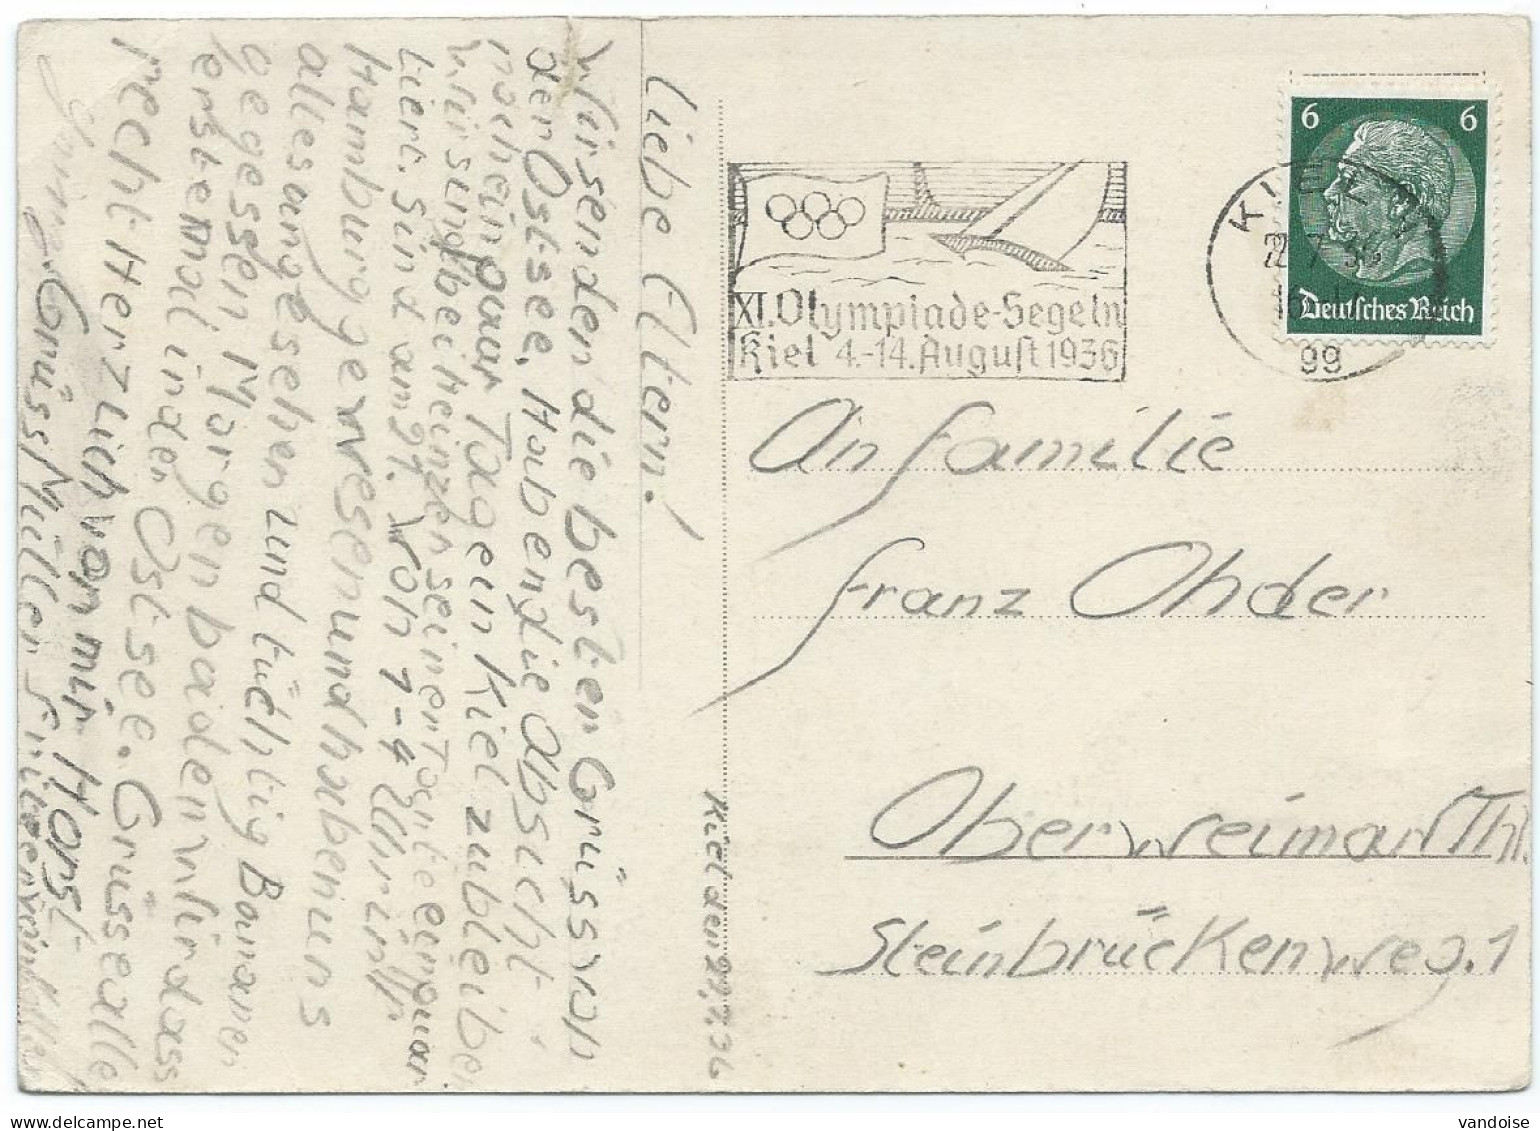 Liebe Eltern!
Wir senden die besten Grüsse von
der Ostsee, Haben die Absicht
noch ein paar Tage in Kiel zu bleiben
Wir sind bei Heinz en seiner Tante einquar
tiert. Sind am 21. Von 1-4 Uhr in
Hamburg gewesen und haben uns
alles angesehen und tüchtig Bananen
gegessen Morgen baden wir das
erste mal in der Ostsee. Grüsse alle
recht Herzlich von mir Horst
Gruss Müller
Kiel den 22.7.36
XI. Olympiade-Segeln
Kiel 4.-14. August 1936
KIEL
22.7.36
99
6 6
Deutsches Reich
An Familie
Franz Ohder
Oberweimar/Th.
Steinbrückenweg. 1
vandoise